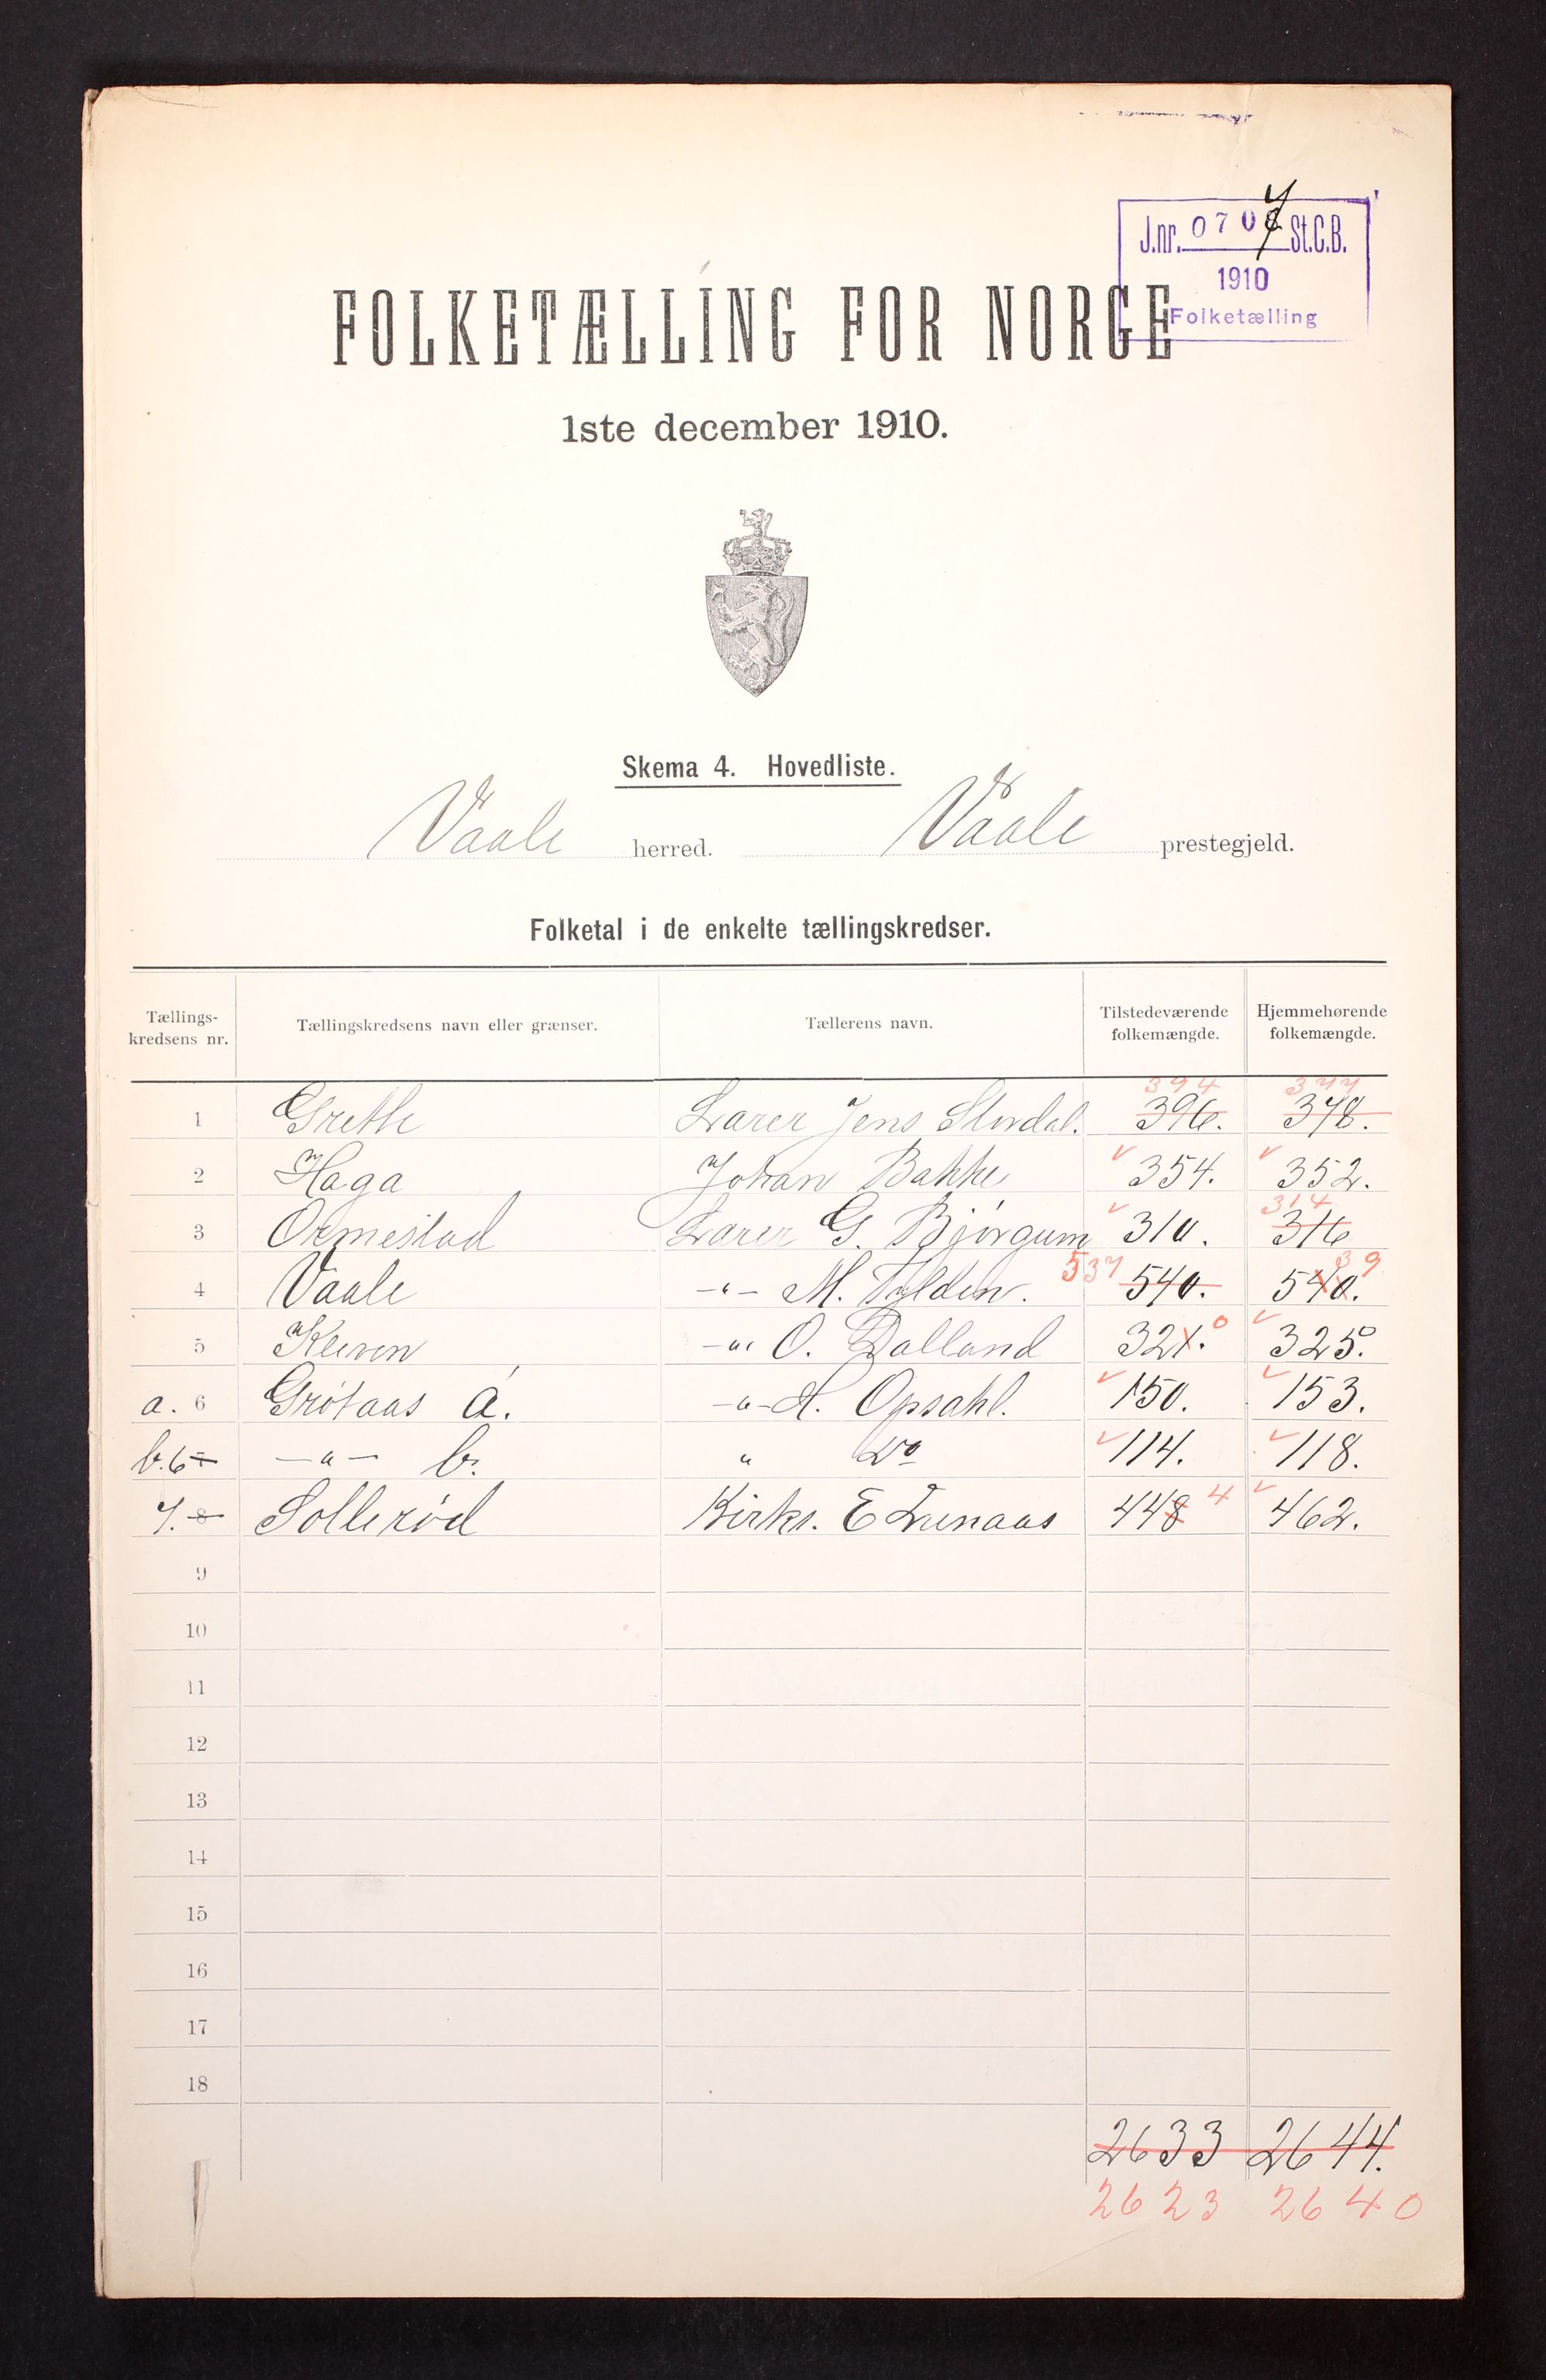 J.nr. 0707 St.C.B.
1910
Folketælling
FOLKETÆLLING FOR NORGE
1ste december 1910.
Skema 4. Hovedliste.
Vaale herred. Vaale prestegjeld.
Folketal i de enkelte tællingskredser.
Tællings-kredsens nr. Tællingskredsens navn eller grænser. Tællerens navn. Tilstedeværende folkemængde. Hjemmehørende folkemængde.
394 377
1 Grette Lærer Jens 396. 378.
2 Haga Johan Bakke 354. 352.
314
3 Ormestad Lærer G. Bjørgum 310. 316
537 39
4 Vaale -"- M. 540. 540.
5 Kleven -"- O. Dalland 321. 0 325.
a. 6 Grötaas a. -"- H. Opsahl. 150. 153.
b. 6 7 -"- b. " Do 114. 118.
7. 8 Sollerød Kirks. E Lunaas 448 4 462.
9
10
11
12
13
14
15
16
17
18
2633 2644.
2623 2640